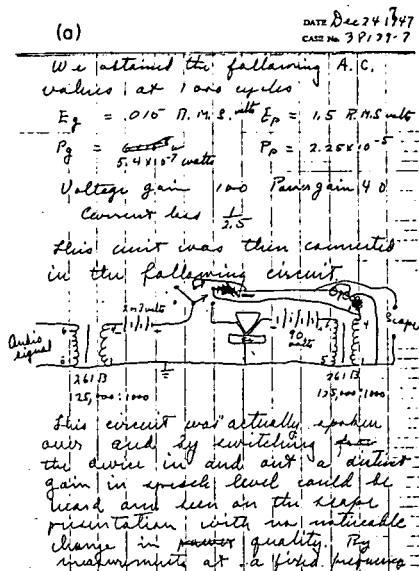 (a)
DATE Dec 24 1947
CASE No. 38139-7
We obtained the following A.C.
values at 1000 cycles
Eg = .015 R.M.S. volts Ep = 1.5 R.M.S volts
Pg = 5.4 x 10⁻⁷ watts Pp = 2.25 x 10⁻⁵
Voltage gain 100 Power gain 40
Current loss 1/2.5
This unit was then connected
in the following circuit
Audio
signal
volts
90
Scope
261B
125,000:1000
261B
125,000:1000
This circuit was actually spoken
over and by switching
the device in and out a distinct
gain in speech level could be
heard and seen on the scope
presentation with no noticeable
change in quality. By
measurements at a fixed frequency